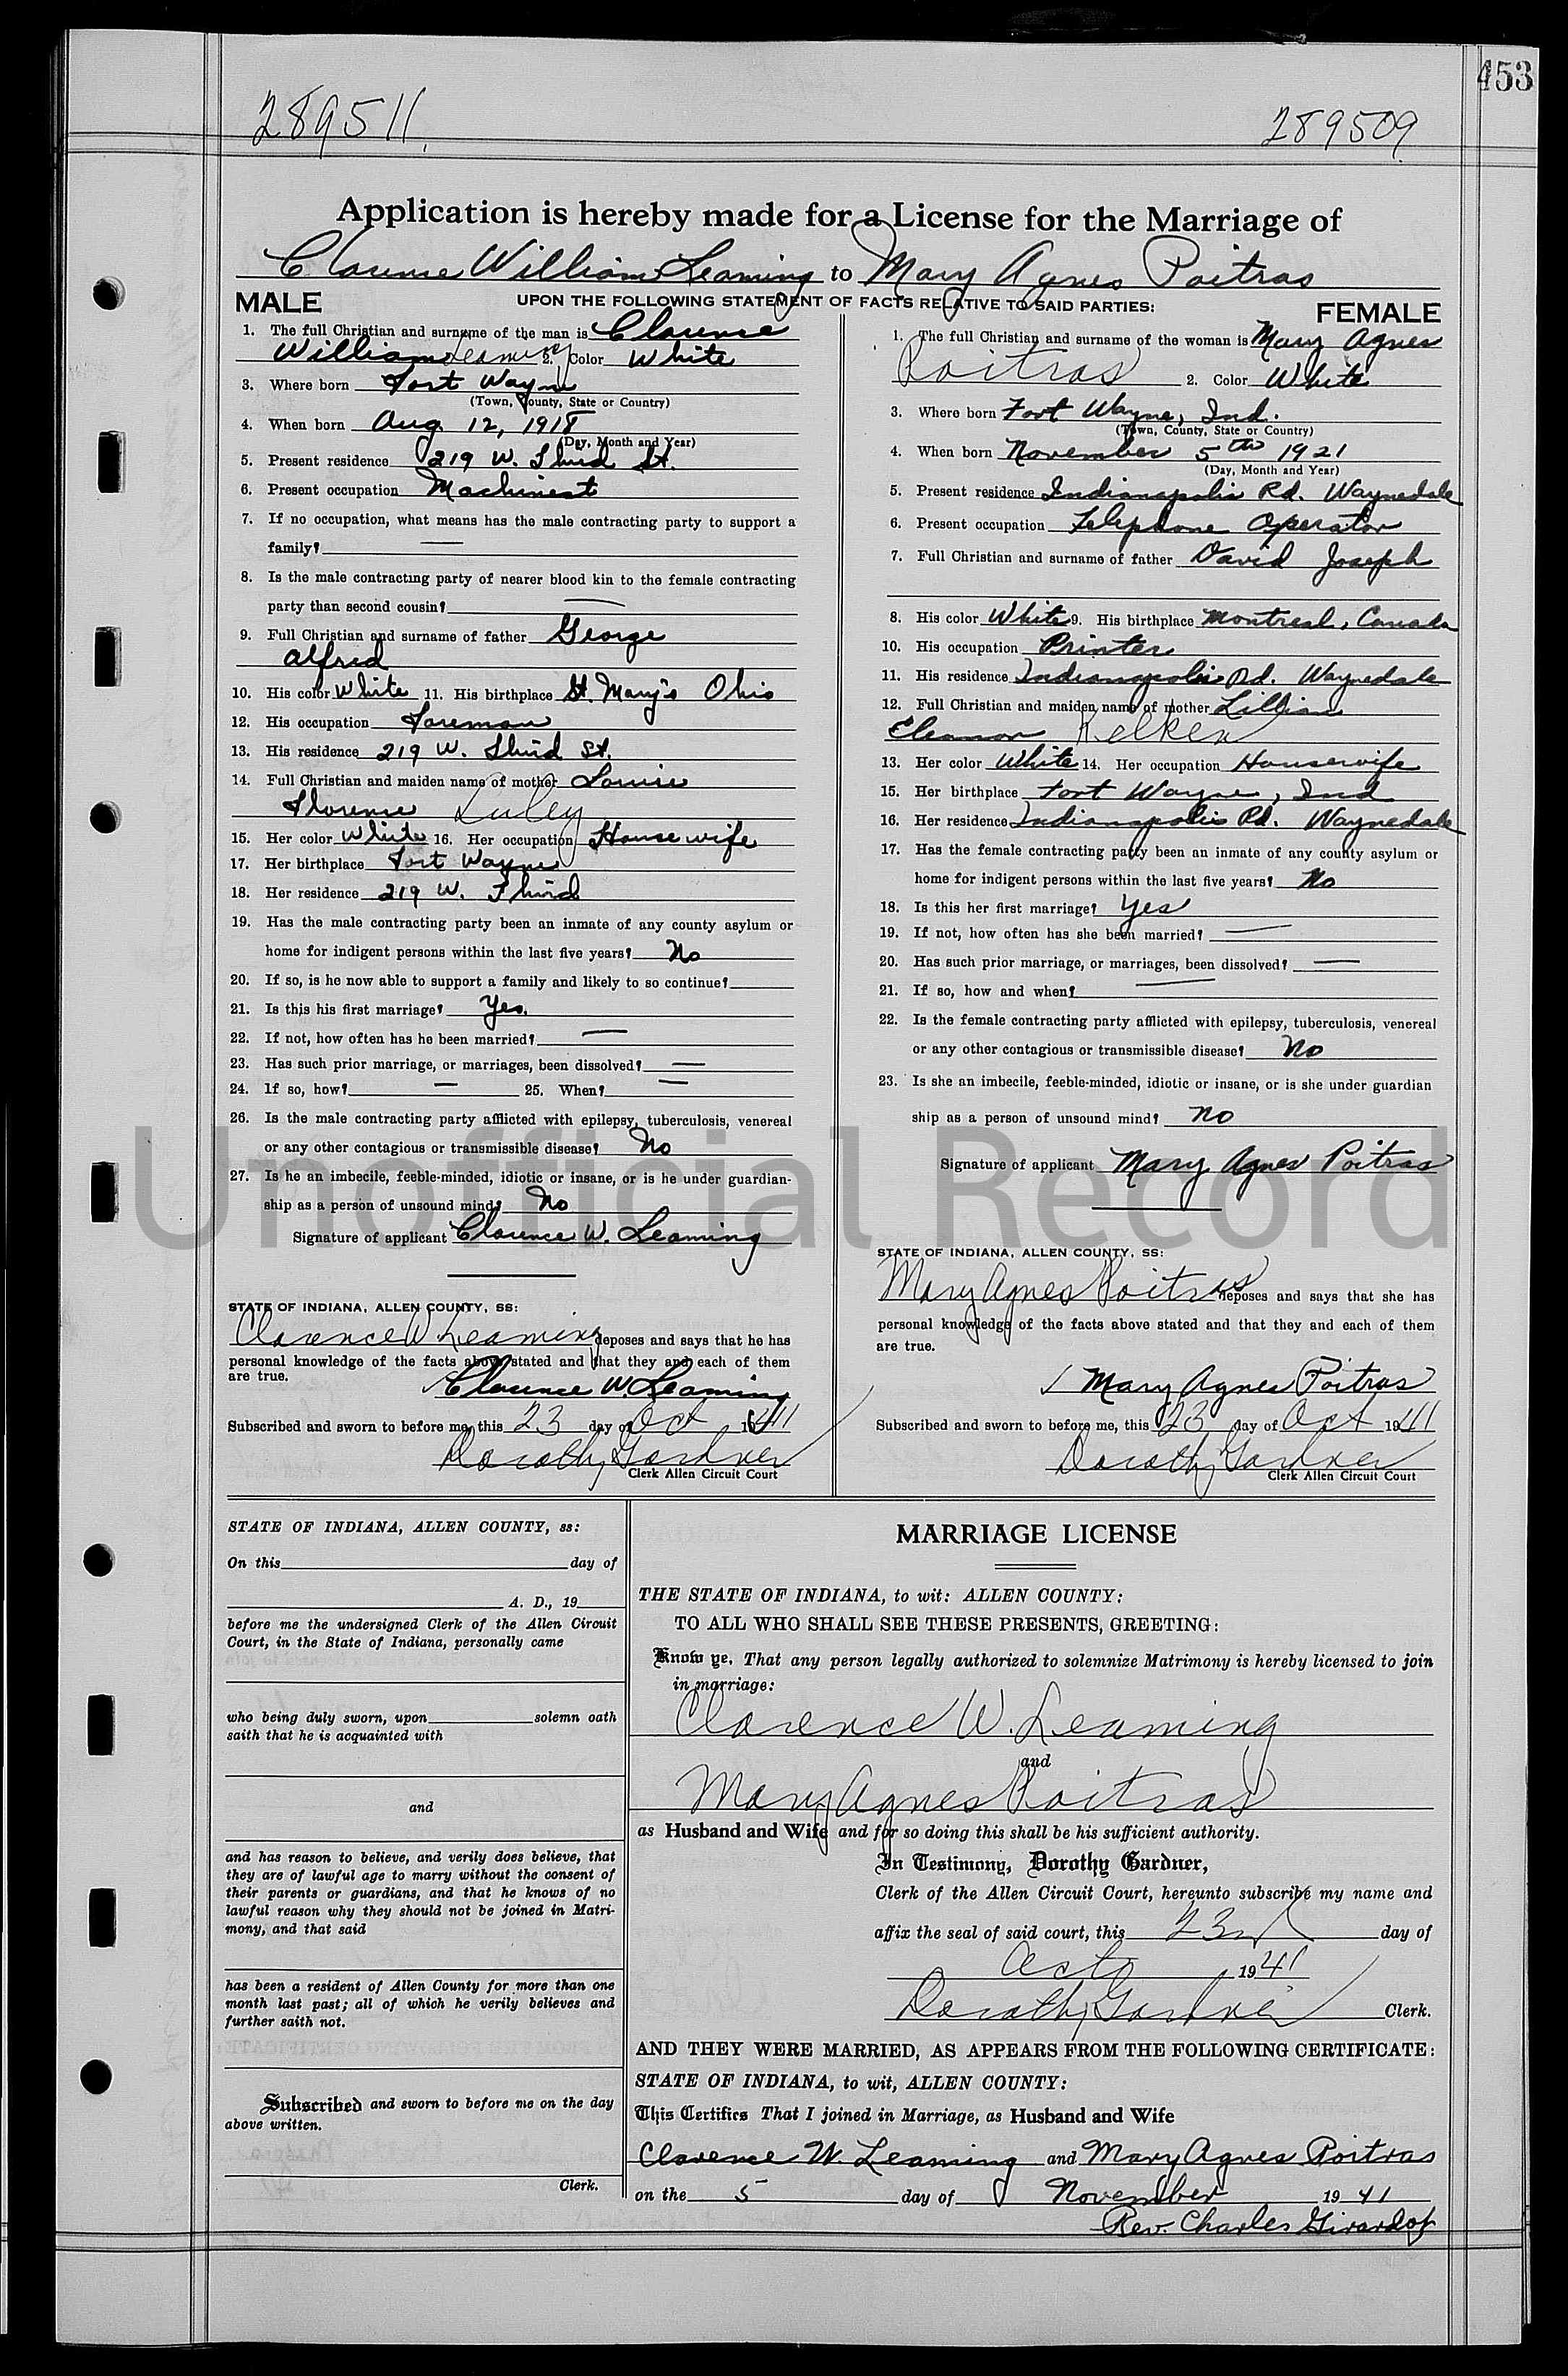 453
289511
289509
Application is hereby made for a License for the Marriage of
Clarence William Leaming to Mary Agnes Poitras
MALE
UPON THE FOLLOWING STATEMENT OF FACTS RELATIVE TO SAID PARTIES:
FEMALE
1. The full Christian and surname of the man is Clarence
William Leaming 2. Color White
3. Where born Fort Wayne
(Town, County, State or Country)
4. When born Aug 12, 1918
(Day, Month and Year)
5. Present residence 219 W. Third St.
6. Present occupation Machinest
7. If no occupation, what means has the male contracting party to support a
family? —
8. Is the male contracting party of nearer blood kin to the female contracting
party than second cousin? —
9. Full Christian and surname of father George
Alfred
10. His color White 11. His birthplace St. Mary's Ohio
12. His occupation Foreman
13. His residence 219 W. Third St.
14. Full Christian and maiden name of mother Louise
Florence Luley
15. Her color White 16. Her occupation Housewife
17. Her birthplace Fort Wayne
18. Her residence 219 W. Third
19. Has the male contracting party been an inmate of any county asylum or
home for indigent persons within the last five years? No
20. If so, is he now able to support a family and likely to so continue?
21. Is this his first marriage? Yes.
22. If not, how often has he been married? —
23. Has such prior marriage, or marriages, been dissolved? —
24. If so, how? — 25. When? —
26. Is the male contracting party afflicted with epilepsy, tuberculosis, venereal
or any other contagious or transmissible disease? No
27. Is he an imbecile, feeble-minded, idiotic or insane, or is he under guardian-
ship as a person of unsound mind? No
Signature of applicant Clarence W. Leaming
STATE OF INDIANA, ALLEN COUNTY, SS:
Clarence W Leaming deposes and says that he has
personal knowledge of the facts above stated and that they and each of them
are true.
Clarence W. Leaming
Subscribed and sworn to before me, this 23 day of Oct 1941
Dorothy Gardner
Clerk Allen Circuit Court
1. The full Christian and surname of the woman is Mary Agnes
Poitras 2. Color White
3. Where born Fort Wayne, Ind.
(Town, County, State or Country)
4. When born November 5th 1921
(Day, Month and Year)
5. Present residence Indianapolis Rd. Waynedale
6. Present occupation Telephone Operator
7. Full Christian and surname of father David Joseph
8. His color White 9. His birthplace Montreal, Canada
10. His occupation Printer
11. His residence Indianapolis Rd. Waynedale
12. Full Christian and maiden name of mother Lillian
Eleanor Kelker
13. Her color White 14. Her occupation Housewife
15. Her birthplace Fort Wayne, Ind
16. Her residence Indianapolis Rd. Waynedale
17. Has the female contracting party been an inmate of any county asylum or
home for indigent persons within the last five years? No
18. Is this her first marriage? Yes
19. If not, how often has she been married? —
20. Has such prior marriage, or marriages, been dissolved? —
21. If so, how and when? —
22. Is the female contracting party afflicted with epilepsy, tuberculosis, venereal
or any other contagious or transmissible disease? No
23. Is she an imbecile, feeble-minded, idiotic or insane, or is she under guardian
ship as a person of unsound mind? No
Signature of applicant Mary Agnes Poitras
STATE OF INDIANA, ALLEN COUNTY, SS:
Mary Agnes Poitras deposes and says that she has
personal knowledge of the facts above stated and that they and each of them
are true.
Mary Agnes Poitras
Subscribed and sworn to before me, this 23 day of Oct 1941
Dorothy Gardner
Clerk Allen Circuit Court
Unofficial Record
STATE OF INDIANA, ALLEN COUNTY, ss:
On this day of
A. D., 19
before me the undersigned Clerk of the Allen Circuit
Court, in the State of Indiana, personally came
who being duly sworn, upon solemn oath
saith that he is acquainted with
and
and has reason to believe, and verily does believe, that
they are of lawful age to marry without the consent of
their parents or guardians, and that he knows of no
lawful reason why they should not be joined in Matri-
mony, and that said
has been a resident of Allen County for more than one
month last past; all of which he verily believes and
further saith not.
Subscribed and sworn to before me on the day
above written.
Clerk.
MARRIAGE LICENSE
THE STATE OF INDIANA, to wit: ALLEN COUNTY:
TO ALL WHO SHALL SEE THESE PRESENTS, GREETING:
Know ye, That any person legally authorized to solemnize Matrimony is hereby licensed to join
in marriage:
Clarence W. Leaming
and
Mary Agnes Poitras
as Husband and Wife and for so doing this shall be his sufficient authority.
In Testimony, Dorothy Gardner,
Clerk of the Allen Circuit Court, hereunto subscribe my name and
affix the seal of said court, this 23rd day of
Oct 1941
Dorothy Gardner Clerk.
AND THEY WERE MARRIED, AS APPEARS FROM THE FOLLOWING CERTIFICATE:
STATE OF INDIANA, to wit, ALLEN COUNTY:
This Certifies That I joined in Marriage, as Husband and Wife
Clarence W. Leaming and Mary Agnes Poitras
on the 5 day of November 1941
Rev. Charles Girardot